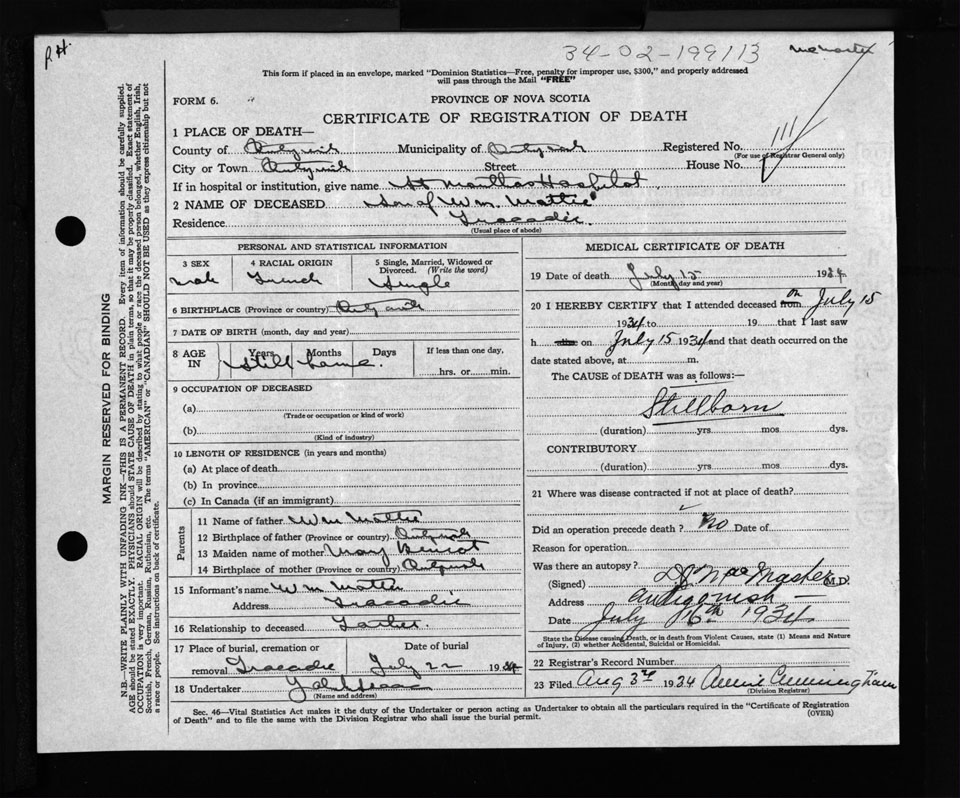 P.H.
34-02-199113
This form if placed in an envelope, marked "Dominion Statistics—Free, penalty for improper use, $300," and properly addressed
will pass through the Mail "FREE"
FORM 6.
PROVINCE OF NOVA SCOTIA
CERTIFICATE OF REGISTRATION OF DEATH
1 PLACE OF DEATH—
County of Antigonish Municipality of Antigonish Registered No.
(For use of Registrar General only)
111
City or Town Antigonish Street House No.
If in hospital or institution, give name St Marthas Hospital
2 NAME OF DECEASED Son of Wm. Mattie
Residence Tracadie.
(Usual place of abode)
PERSONAL AND STATISTICAL INFORMATION
3 SEX
Male
4 RACIAL ORIGIN
French
5 Single, Married, Widowed or
Divorced. (Write the word)
Single
6 BIRTHPLACE (Province or country) Antigonish
7 DATE OF BIRTH (month, day and year)
8 AGE IN Years Months Days
Still borne.
If less than one day,
hrs. or min.
9 OCCUPATION OF DECEASED
(a)
(Trade or occupation or kind of work)
(b)
(Kind of industry)
10 LENGTH OF RESIDENCE (in years and months)
(a) At place of death
(b) In province
(c) In Canada (if an immigrant)
Parents
11 Name of father Wm Mattie
12 Birthplace of father (Province or country) Antigonish
13 Maiden name of mother Mary Benoit
14 Birthplace of mother (Province or country) Antigonish
15 Informant's name Wm Mattie
Address Tracadie
16 Relationship to deceased Father.
17 Place of burial, cremation or
removal Tracadie
Date of burial
July 22 1934
18 Undertaker
(Name and address)
MEDICAL CERTIFICATE OF DEATH
19 Date of death July 15 1934
(Month, day and year)
20 I HEREBY CERTIFY that I attended deceased from on July 15
1934 to 19 that I last saw
h on July 15 1934 and that death occurred on the
date stated above, at m.
The CAUSE of DEATH was as follows:—
Stillborn
(duration) yrs. mos. dys.
CONTRIBUTORY
(duration) yrs. mos. dys.
21 Where was disease contracted if not at place of death?
Did an operation precede death? No Date of
Reason for operation
Was there an autopsy?
(Signed) MacMaster M.D.
Address Antigonish
Date July 16th 1934.
State the Disease causing Death, or in death from Violent Causes, state (1) Means and Nature
of Injury, (2) whether Accidental, Suicidal or Homicidal.
22 Registrar's Record Number
23 Filed Aug 3rd 1934 Annie Cunningham
(Division Registrar)
Sec. 46—Vital Statistics Act makes it the duty of the Undertaker or person acting as Undertaker to obtain all the particulars required in the "Certificate of Registration
of Death" and to file the same with the Division Registrar who shall issue the burial permit.
(OVER)
MARGIN RESERVED FOR BINDING
N.B.—WRITE PLAINLY WITH UNFADING INK—THIS IS A PERMANENT RECORD. Every item of information should be carefully supplied.
AGE should be stated EXACTLY. PHYSICIANS should STATE CAUSE OF DEATH in plain terms, so that it may be properly classified. Exact statement of
OCCUPATION is very important. RACIAL ORIGIN will be described by stating to what people or race the deceased person belonged, whether English, Irish,
Scottish, French, German, Russian, Ruthenian, etc. The terms "AMERICAN" or "CANADIAN" SHOULD NOT BE USED as they express citizenship but not
a race or people. See instructions on back of certificate.